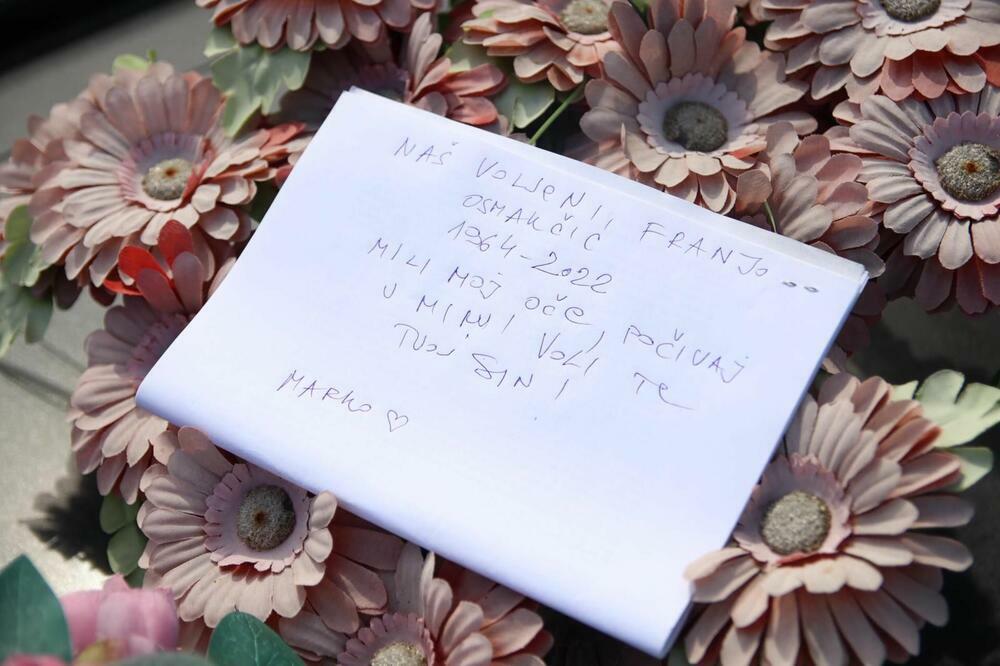 NAŠ VOLJENI, FRANJO..
OSMAKČIĆ
1964-2022
MILI MOJ OČE, POČIVAJ
U MIRU, VOLI TE
TVOJ SIN,
MARKO ♡